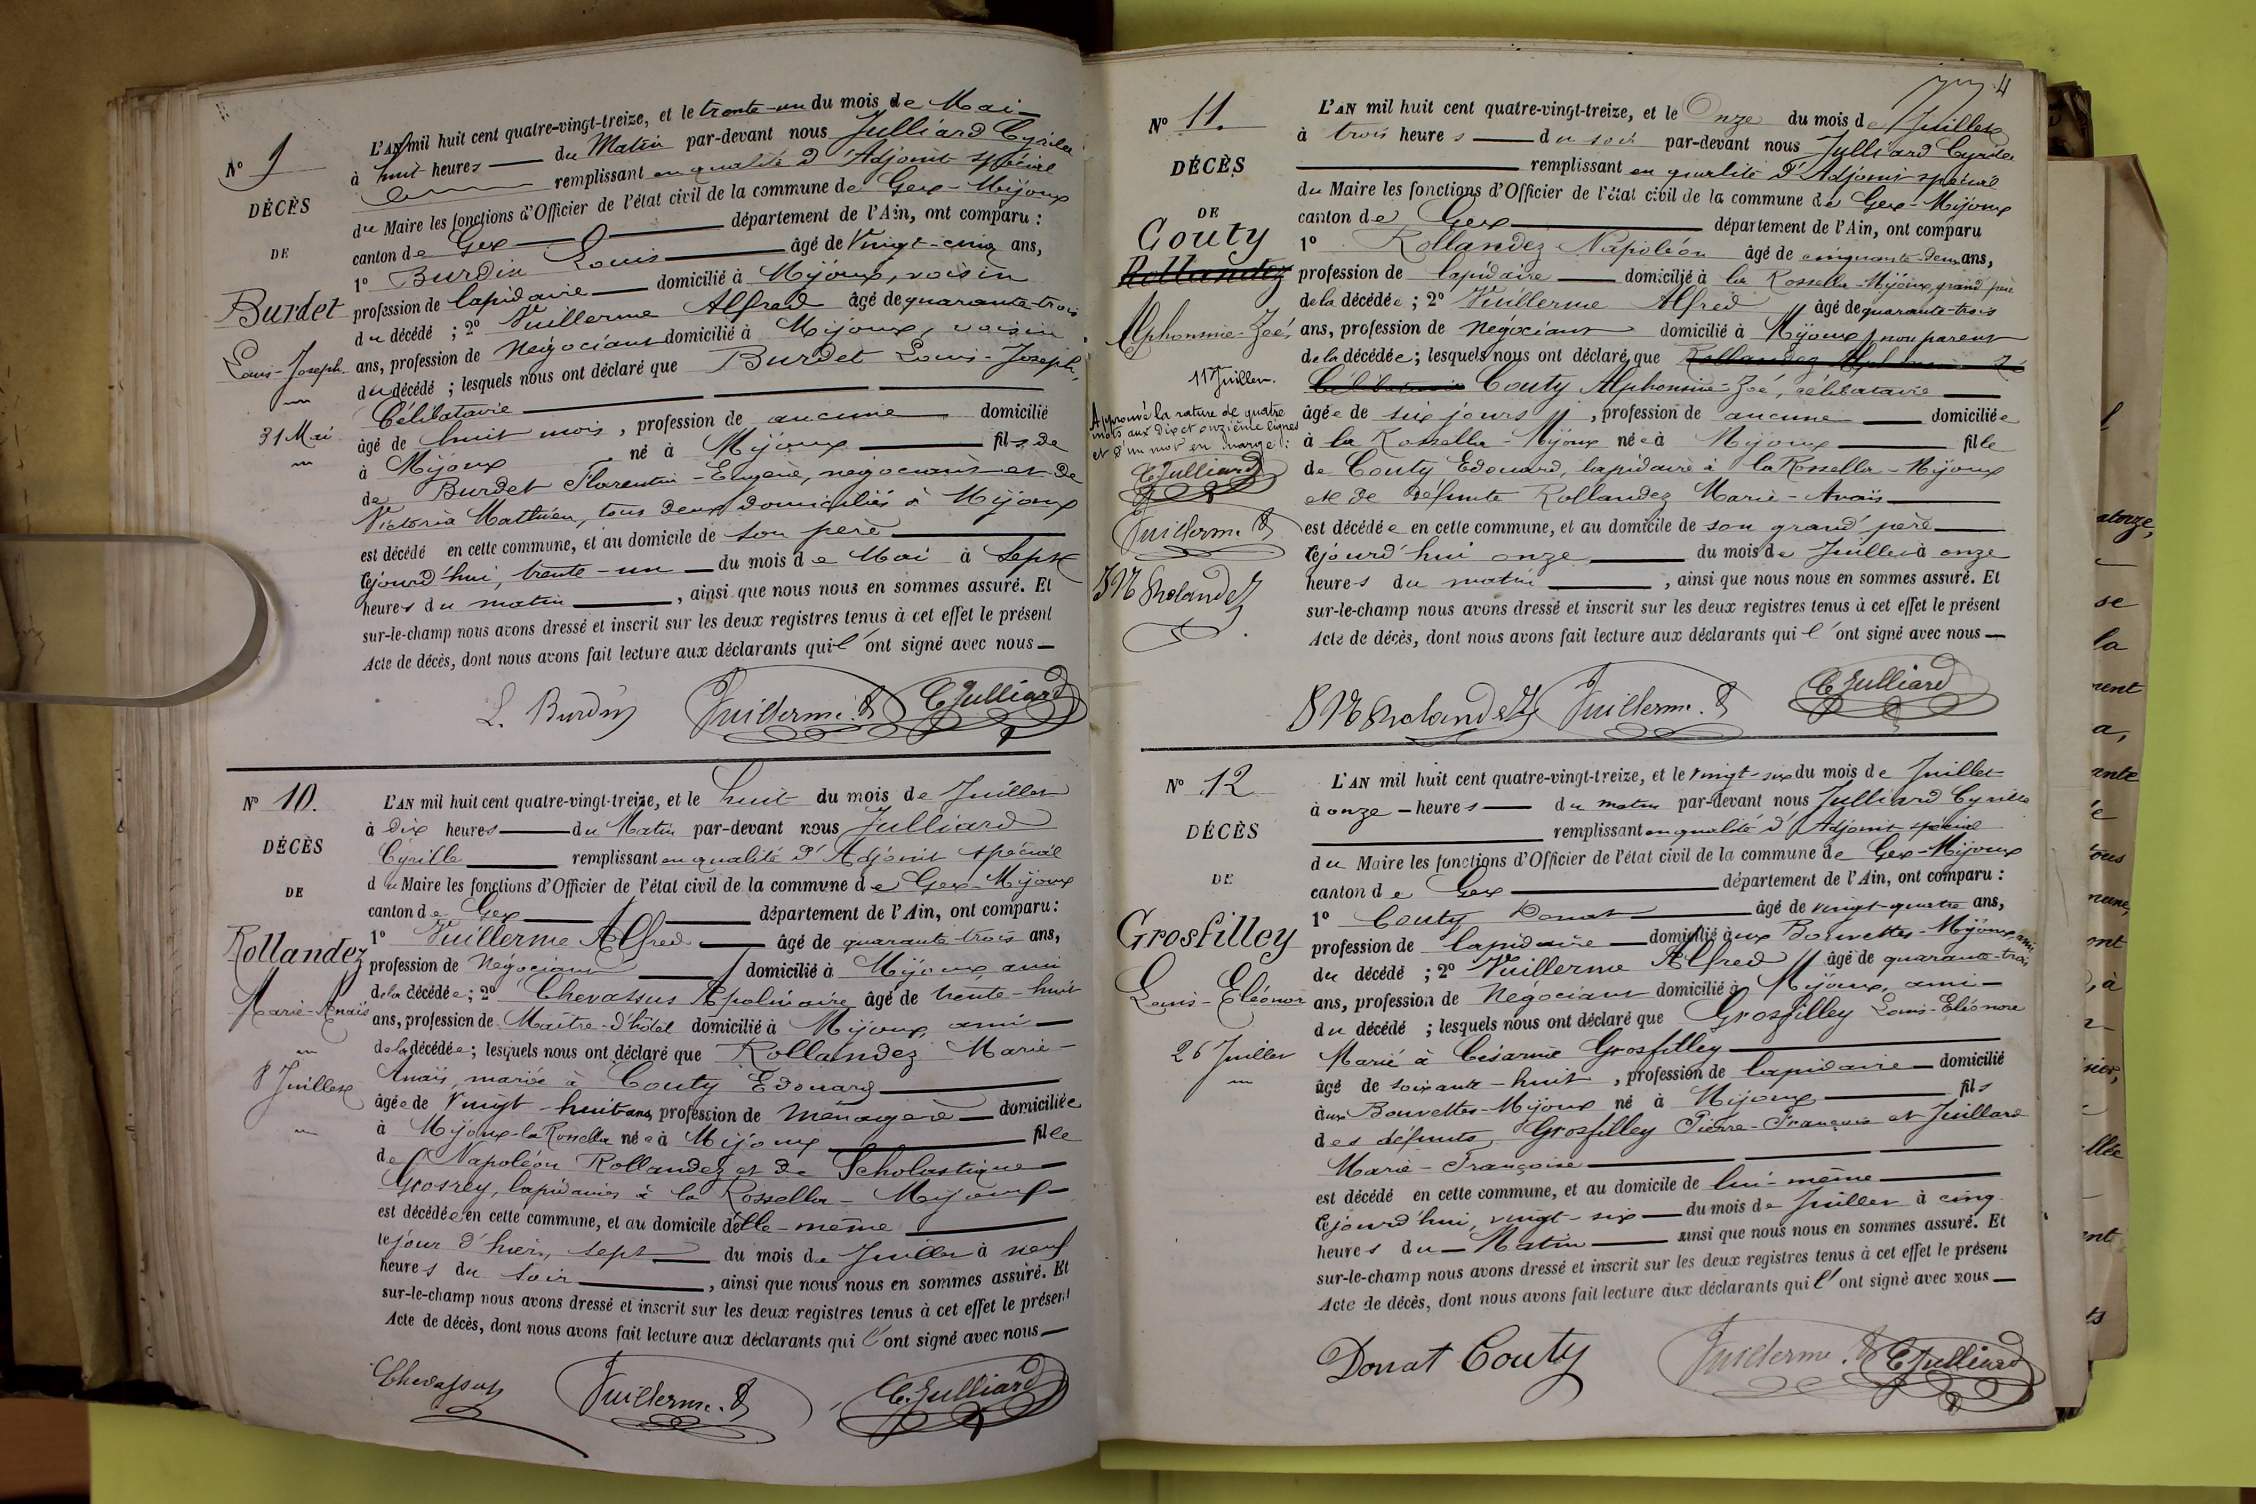 N° 9
DÉCÈS
DE
Burdet
Louis-Joseph
31 Mai
L'AN mil huit cent quatre-vingt-treize, et le trente-un du mois de Mai
à huit heures du Matin par-devant nous Julliard Cyrille
remplissant en qualité d'Adjoint spécial
du Maire les fonctions d'Officier de l'état civil de la commune de Gex-Mijoux
canton de Gex département de l'Ain, ont comparu :
1° Burdin Louis âgé de Vingt-cinq ans,
profession de lapidaire domicilié à Mijoux, voisin
du décédé ; 2° Vuillerme Alfred âgé de quarante-trois
ans, profession de Négociant domicilié à Mijoux, voisin
du décédé ; lesquels nous ont déclaré que Burdet Louis-Joseph,
Célibataire
âgé de huit mois, profession de aucune domicilié
à Mijoux né à Mijoux fils de
de Burdet Florentin-Eugène, négociant et de
Victoria Mathieu, tous deux domiciliés à Mijoux
est décédé en cette commune, et au domicile de son père
cejourd'hui, trente-un du mois de Mai à Sept
heures du matin, ainsi que nous nous en sommes assuré. Et
sur-le-champ nous avons dressé et inscrit sur les deux registres tenus à cet effet le présent
Acte de décès, dont nous avons fait lecture aux déclarants qui l'ont signé avec nous
L. Burdin Vuillerme. A C. Julliard
N° 10.
DÉCÈS
DE
Rollandez
Marie-Anaïs
8 Juillet
L'AN mil huit cent quatre-vingt-treize, et le huit du mois de Juillet
à dix heures du Matin par-devant nous Julliard
Cyrille remplissant en qualité d'Adjoint spécial
du Maire les fonctions d'Officier de l'état civil de la commune de Gex-Mijoux
canton de Gex département de l'Ain, ont comparu :
1° Vuillerme Alfred âgé de quarante-trois ans,
profession de Négociant domicilié à Mijoux ami
de la décédée ; 2° Chevassus Apolinaire âgé de trente-huit
ans, profession de Maître-d'hôtel domicilié à Mijoux, ami
de la décédée ; lesquels nous ont déclaré que Rollandez Marie-
Anaïs, mariée à Couty Edouard
âgée de vingt-huit ans, profession de Ménagère domiciliée
à Mijoux-la Rossella née à Mijoux fille
de Napoléon Rollandez et de Scholastique
Grosrey, lapidaires à la Rossella-Mijoux
est décédée en cette commune, et au domicile d'elle-même
le jour d'hier, sept du mois de Juillet à neuf
heures du soir, ainsi que nous nous en sommes assuré. Et
sur-le-champ nous avons dressé et inscrit sur les deux registres tenus à cet effet le présent
Acte de décès, dont nous avons fait lecture aux déclarants qui l'ont signé avec nous
Chevassus Vuillerme. A C. Julliard
4
N° 11.
DÉCÈS
DE
Couty
Rollandez
Alphonsine-Zoé
11 Juillet.
Approuvé la rature de quatre
mots aux dix et onzième lignes
et d'un mot en marge :
C Julliard
Vuillerme A
L'AN mil huit cent quatre-vingt-treize, et le Onze du mois de Juillet
à trois heures du soir par-devant nous Julliard Cyrille
remplissant en qualité d'Adjoint spécial
du Maire les fonctions d'Officier de l'état civil de la commune de Gex-Mijoux
canton de Gex département de l'Ain, ont comparu
1° Rollandez Napoléon âgé de cinquante-deux ans,
profession de lapidaire domicilié à la Rossella-Mijoux, grand père
de la décédée ; 2° Vuillerme Alfred âgé de quarante-trois
ans, profession de Négociant domicilié à Mijoux, non parent
de la décédée ; lesquels nous ont déclaré que Rollandez Alphonsine Zoé
Célibataire Couty Alphonsine-Zoé, célibataire
âgée de six jours, profession de aucune domiciliée
à la Rossella-Mijoux née à Mijoux fille
de Couty Edouard, lapidaire à la Rossella-Mijoux
et de défunte Rollandez Marie-Anaïs
est décédée en cette commune, et au domicile de son grand père
cejourd'hui onze du mois de Juillet à onze
heures du matin, ainsi que nous nous en sommes assuré. Et
sur-le-champ nous avons dressé et inscrit sur les deux registres tenus à cet effet le présent
Acte de décès, dont nous avons fait lecture aux déclarants qui l'ont signé avec nous
Vuillerme. A C Julliard
N° 12
DÉCÈS
DE
Grosfilley
Louis-Eléonor
26 Juillet
L'AN mil huit cent quatre-vingt-treize, et le vingt-six du mois de Juillet
à onze heures du matin par-devant nous Julliard Cyrille
remplissant en qualité d'Adjoint spécial
du Maire les fonctions d'Officier de l'état civil de la commune de Gex-Mijoux
canton de Gex département de l'Ain, ont comparu :
1° Couty Donat âgé de vingt-quatre ans,
profession de lapidaire domicilié aux Bouvettes-Mijoux, ami
du décédé ; 2° Vuillerme Alfred âgé de quarante-trois
ans, profession de Négociant domicilié à Mijoux, ami
du décédé ; lesquels nous ont déclaré que Grosfilley Louis-Eléonore
Marié à Césarine Grosfilley
âgé de soixante-huit, profession de lapidaire domicilié
aux Bouvettes-Mijoux né à Mijoux fils
des défunts Grosfilley Pierre-François et Juillard
Marie-Françoise
est décédé en cette commune, et au domicile de lui-même
cejourd'hui, vingt-six du mois de Juillet à cinq
heures du Matin ainsi que nous nous en sommes assuré. Et
sur-le-champ nous avons dressé et inscrit sur les deux registres tenus à cet effet le présent
Acte de décès, dont nous avons fait lecture aux déclarants qui l'ont signé avec nous
Donat Couty Vuillerme. A C Julliard